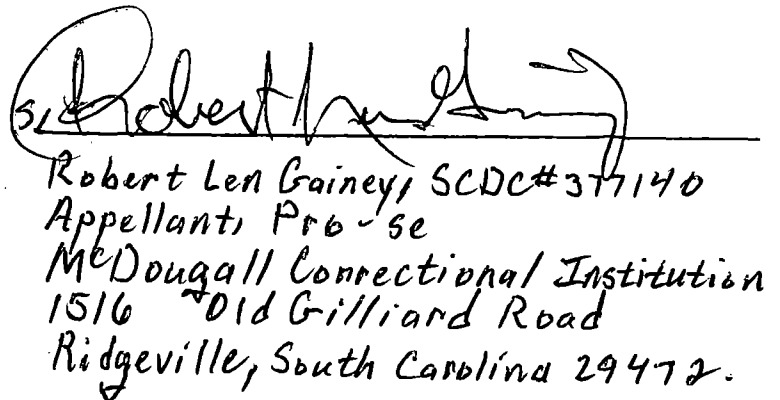 s, Robert Len Gainey
Robert Len Gainey, SCDC#377140
Appellant, Pro-se
McDougall Correctional Institution
1516 Old Gilliard Road
Ridgeville, South Carolina 29472.